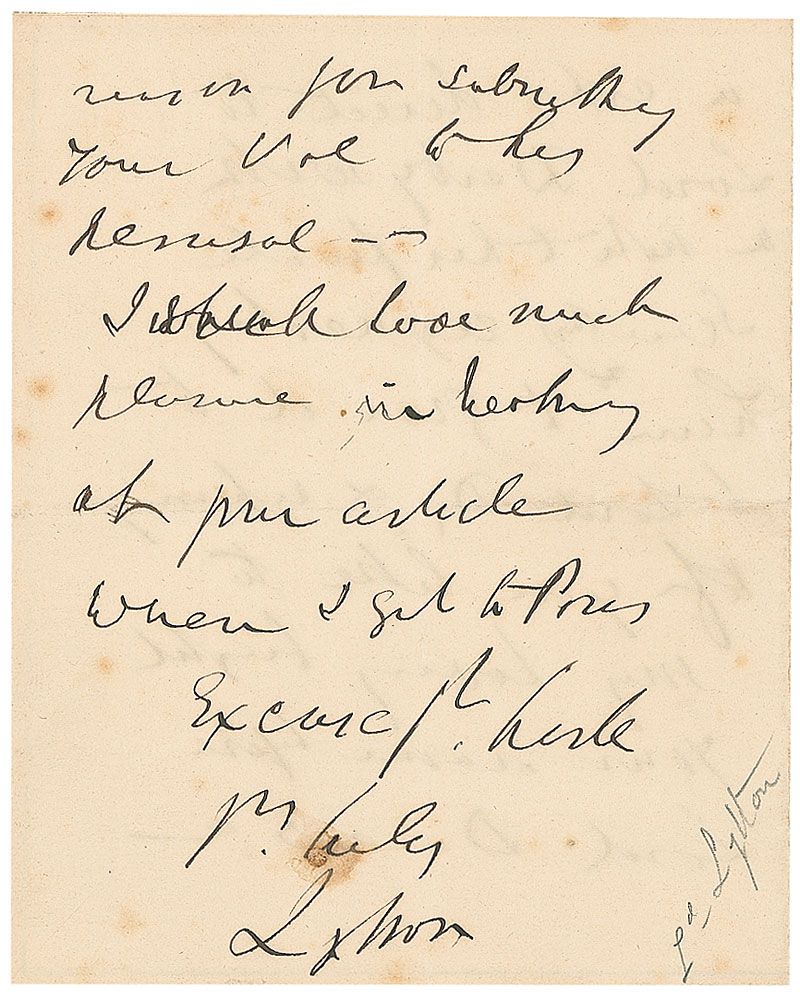 reason for submitting
your Vol to his
perusal --
I shall have much
pleasure in looking
at your article
when I get to Paris
Excuse gt. haste
yrs. truly
Lytton
Ld Lytton